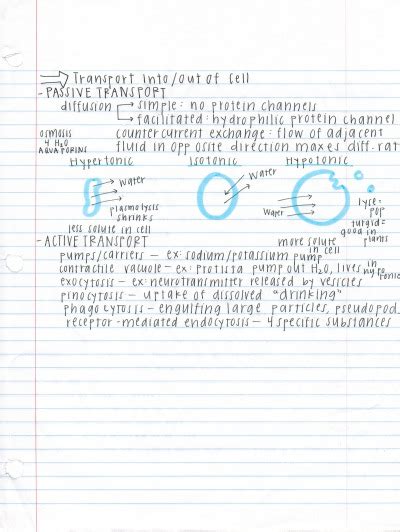 Transport into/out of cell
- PASSIVE TRANSPORT
diffusion → simple: no protein channels
→ facilitated: hydrophilic protein channel
osmosis
4 H₂O
AQUAPORINS
countercurrent exchange: flow of adjacent
fluid in opposite direction maxes diff. rat
Hypertonic Isotonic Hypotonic
→ water
plasmolysis
shrinks
less solute in cell
water
Water
more solute
in cell
lyse=
pop
turgid=
good in
plants
- ACTIVE TRANSPORT
pumps/carriers – ex: sodium/potassium pump
contractile vacuole – ex: Protista pump out H₂O, lives in hypotonic
exocytosis – ex: neurotransmitter released by vesicles
pinocytosis – uptake of dissolved "drinking"
phagocytosis – engulfing large particles, pseudopod
receptor-mediated endocytosis – 4 specific substances